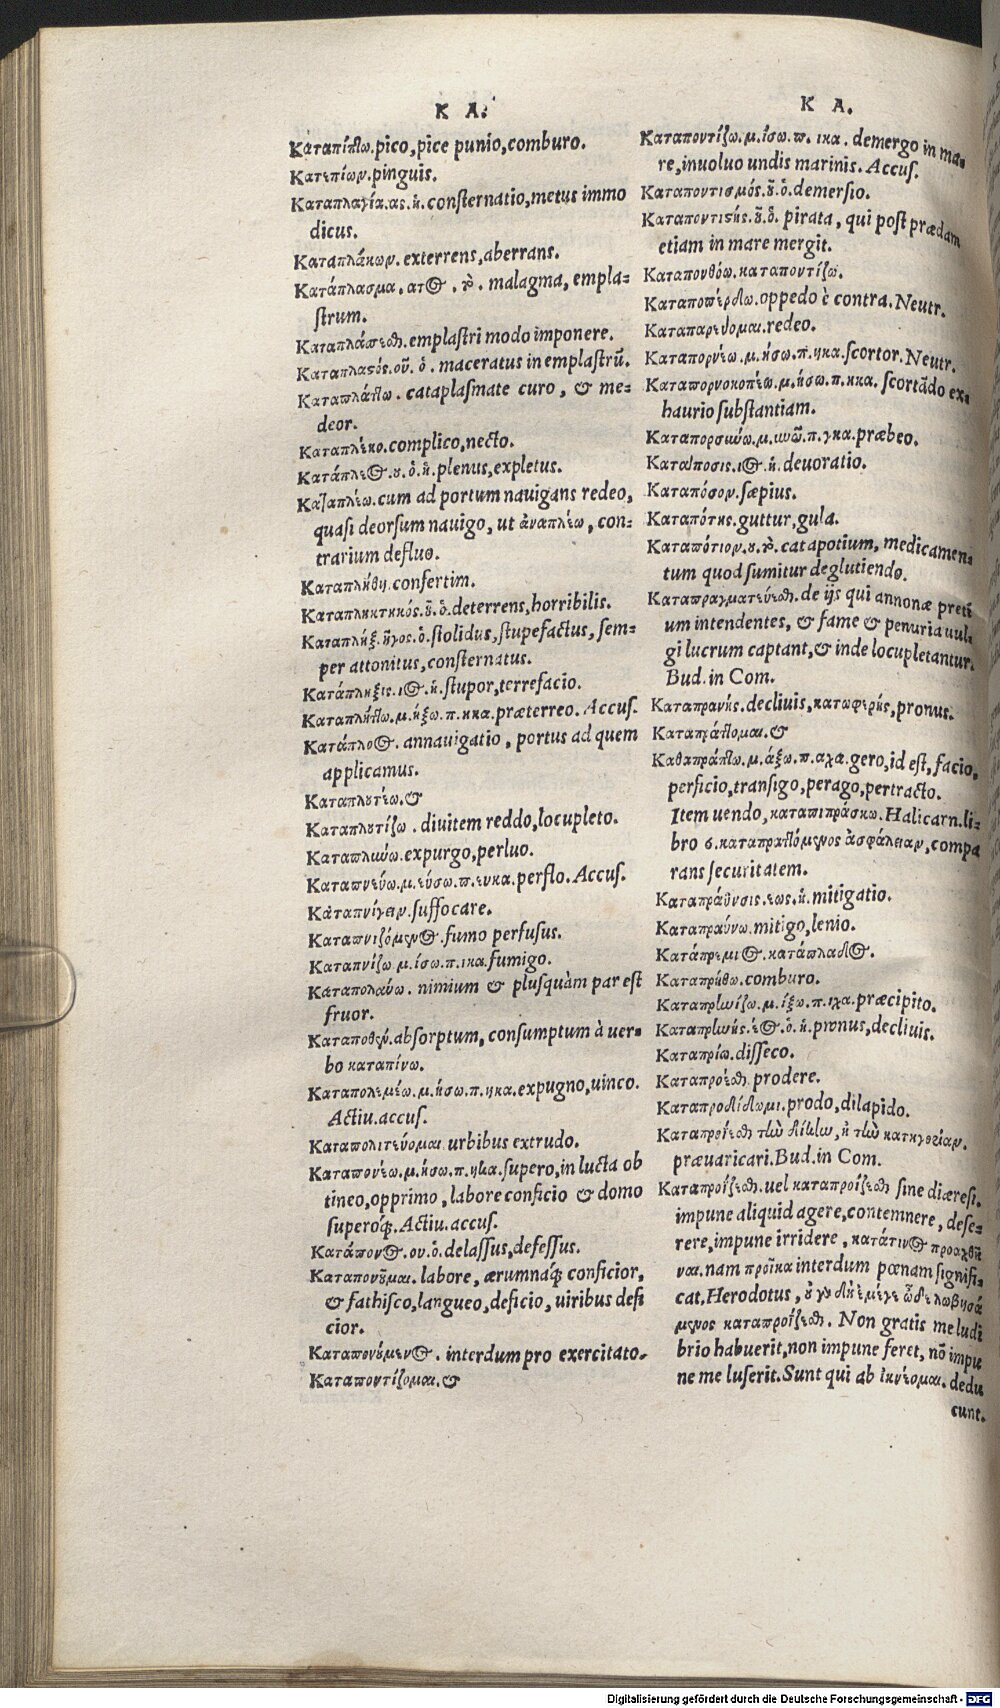 Κ Α.
Καταπίττω. pico, pice punio, comburo.
Κατεπίων. pinguis.
Καταπλαγία. ας. ἡ. consternatio, metus immo
dicus.
Καταπλάκων. exterrens, aberrans.
Κατάπλασμα. ατος. τὸ. malagma, empla=
strum.
Καταπλάσεσθαι. emplastri modo imponere.
Καταπλαστός. οῦ. ὁ. maceratus in emplastrū.
Καταπλάττω. cataplasmate curo, & me=
deor.
Καταπλέκο. complico, necto.
Κατάπλεος. ου. ὁ. ἡ. plenus, expletus.
Καταπλέω. cum ad portum nauigans redeo,
quasi deorsum nauigo, ut ἀναπλέω, con=
trarium defluo.
Καταπλήθη. confertim.
Καταπληκτηκός. οῦ. ὁ. deterrens, horribilis.
Καταπλήξ. ῆγος. ὁ. stolidus, stupefactus, sem=
per attonitus, consternatus.
Κατάπληξις. ιος. ἡ. stupor, terrefacio.
Καταπλήττω. μ. ήξω. π. ηκα. præterreo. Accus.
Κατάπλοος. annauigatio, portus ad quem
applicamus.
Καταπλουτέω. &
Καταπλουτίζω. diuitem reddo, locupleto.
Καταπλυνύω. expurgo, perluo.
Καταπνεύω. μ. εύσω. π. ευκα. perflo. Accus.
Κάταπνίγειν. suffocare.
Καταπνιζόμενος. fumo perfusus.
Καταπνίζω. μ. ίσω. π. ικα. fumigo.
Καταπολαύω. nimium & plusquàm par est
fruor.
Καταποθέν. absorptum, consumptum à uer=
bo καταπίνω.
Καταπολεμέω. μ. ήσω. π. ηκα. expugno, uinco.
Actiu. accus.
Καταπολιτεύομαι. urbibus extrudo.
Καταπονέω. μ. ήσω. π. ηκα. supero, in lucta ob
tineo, opprimo, labore conficio & domo
superoq́;. Actiu. accus.
Κατάπονος. ου. ὁ. delassus, defessus.
Καταπονοῦμαι. labore, ærumnaq́; conficior,
& fathisco, langueo, deficio, uiribus defi
cior.
Καταπονούμενος. interdum pro exercitato.
Καταποντίζομαι. &
Κ Α.
Καταποντίζω. μ. ίσω. π. ικα. demergo in ma=
re, inuoluo undis marinis. Accus.
Καταποντισμός. οῦ. ὁ. demersio.
Καταποντιστής. οῦ. ὁ. pirata, qui post prædam
etiam in mare mergit.
Καταπονθόω. καταποντίζω.
Καταποπέρδω. oppedo è contra. Neutr.
Καταπαρεύομαι. redeo.
Καταπορνέω. μ. ήσω. π. ηκα. scortor. Neutr.
Καταπορνοκοπέω. μ. ήσω. π. ηκα. scortādo ex=
haurio substantiam.
Καταπορσωύω. μ. υνῶ. π. γκα. præbeo.
Κατάποσις. ιος. ἡ. deuoratio.
Καταπόσον. sæpius.
Καταπότης. guttur, gula.
Καταπότιον. ου. τὸ. catapotium, medicamen=
tum quod sumitur deglutiendo.
Καταπραγματεύεσθαι. de ijs qui annonæ preti
um intendentes, & fame & penuria uul=
gi lucrum captant, & inde locupletantur.
Bud. in Com.
Καταπρανής. decliuis, κατωφερής, pronus.
Καταπράττομαι. &
Καθαπράττω. μ. άξω. π. αχα. gero, id est, facio,
perficio, transigo, perago, pertracto.
Item uendo, καταπιπράσκω. Halicarn. li=
bro ϛ. καταπραττόμενος ἀσφάλειαν, compa
rans securitatem.
Καταπράϋνσις. εως. ἡ. mitigatio.
Καταπραύνω. mitigo, lenio.
Κατάπρεμιος. κατάπλαδος.
Καταπρήθω. comburo.
Καταπρηνίζω. μ. ίξω. π. ιχα. præcipito.
Καταπρηνής. έος. ὁ. ἡ. pronus, decliuis.
Καταπρίω. disseco.
Καταπροέσθαι. prodere.
Καταπροδίδωμι. prodo, dilapido.
Καταπροΐεσθαι τὴν δίκην, ἢ τὴν κατηγορίαν.
præuaricari. Bud. in Com.
Καταπροΐξεσθαι. uel καταπροίξεσθαι sine diæresi.
impune aliquid agere, contemnere, dese=
rere, impune irridere, κατάτινος προαχθῆ
ναι. nam προῖκα interdum pœnam signifi=
cat, Herodotus, οὐ γὰρ δὴ ἐμέγε ὧδε λωβησά
μενος καταπροΐξεσθαι. Non gratis me ludi
brio habuerit, non impune feret, nō impu
ne me luserit. Sunt qui ab ἱκνέομαι. dedu
cunt.
Digitalisierung gefördert durch die Deutsche Forschungsgemeinschaft - DFG